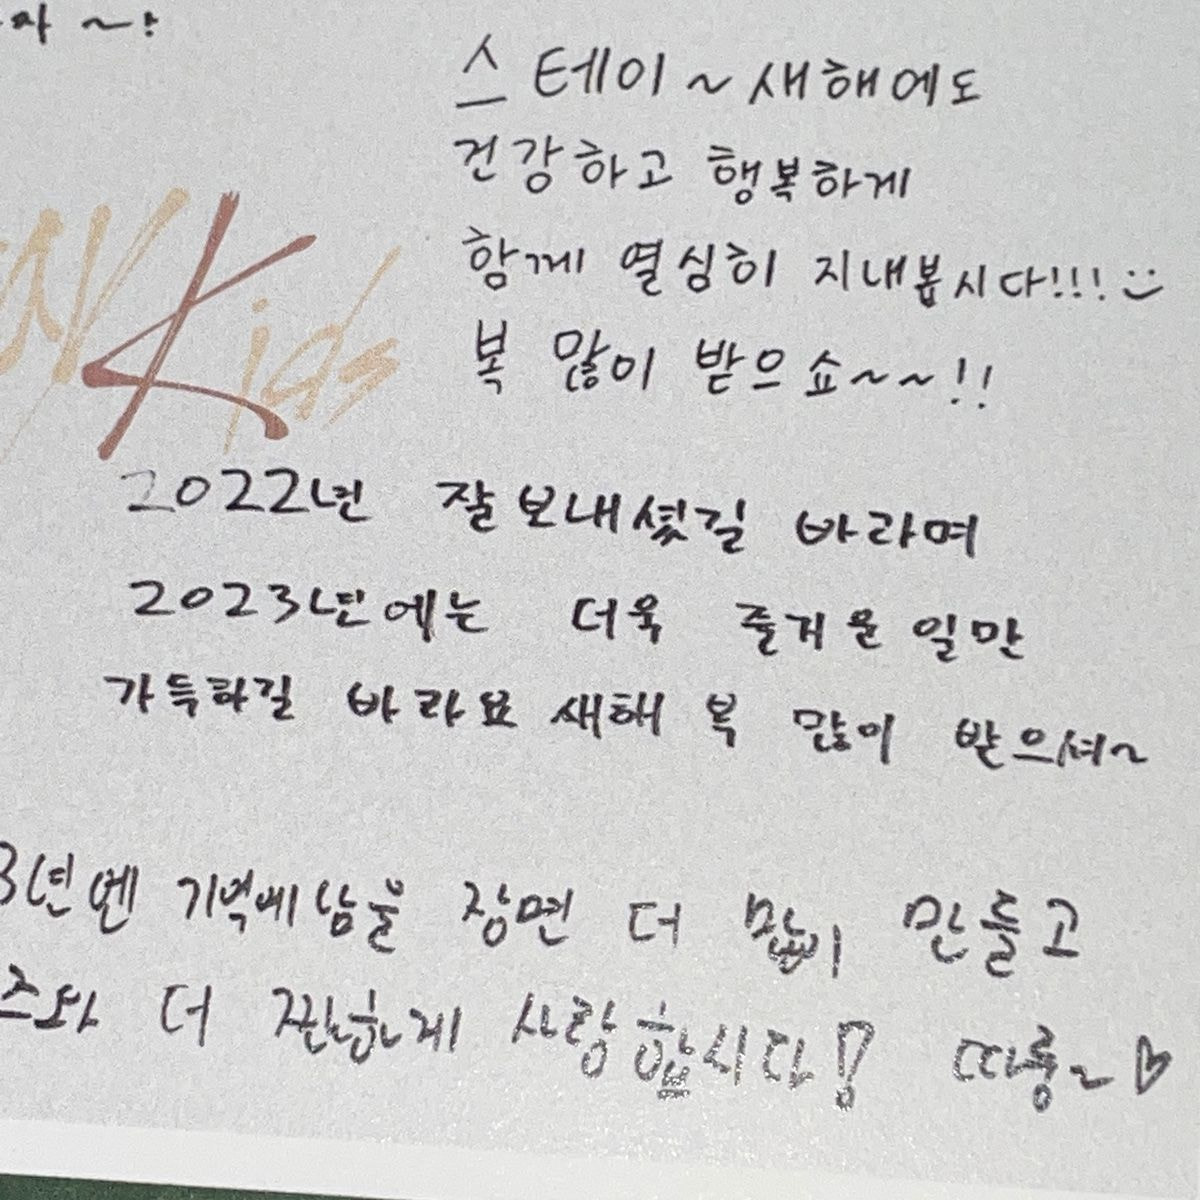 ~!
스테이~ 새해에도
건강하고 행복하게
함께 열심히 지내봅시다!!! :)
복 많이 받으쇼~~!!
Kids
2022년 잘보내셨길 바라며
2023년에는 더욱 즐거운 일만
가득하길 바라요 새해 복 많이 받으셔~
3년엔 기억에 남을 장면 더 많이 만들고
즈와 더 찐하게 사랑합시다! 따룽~♡